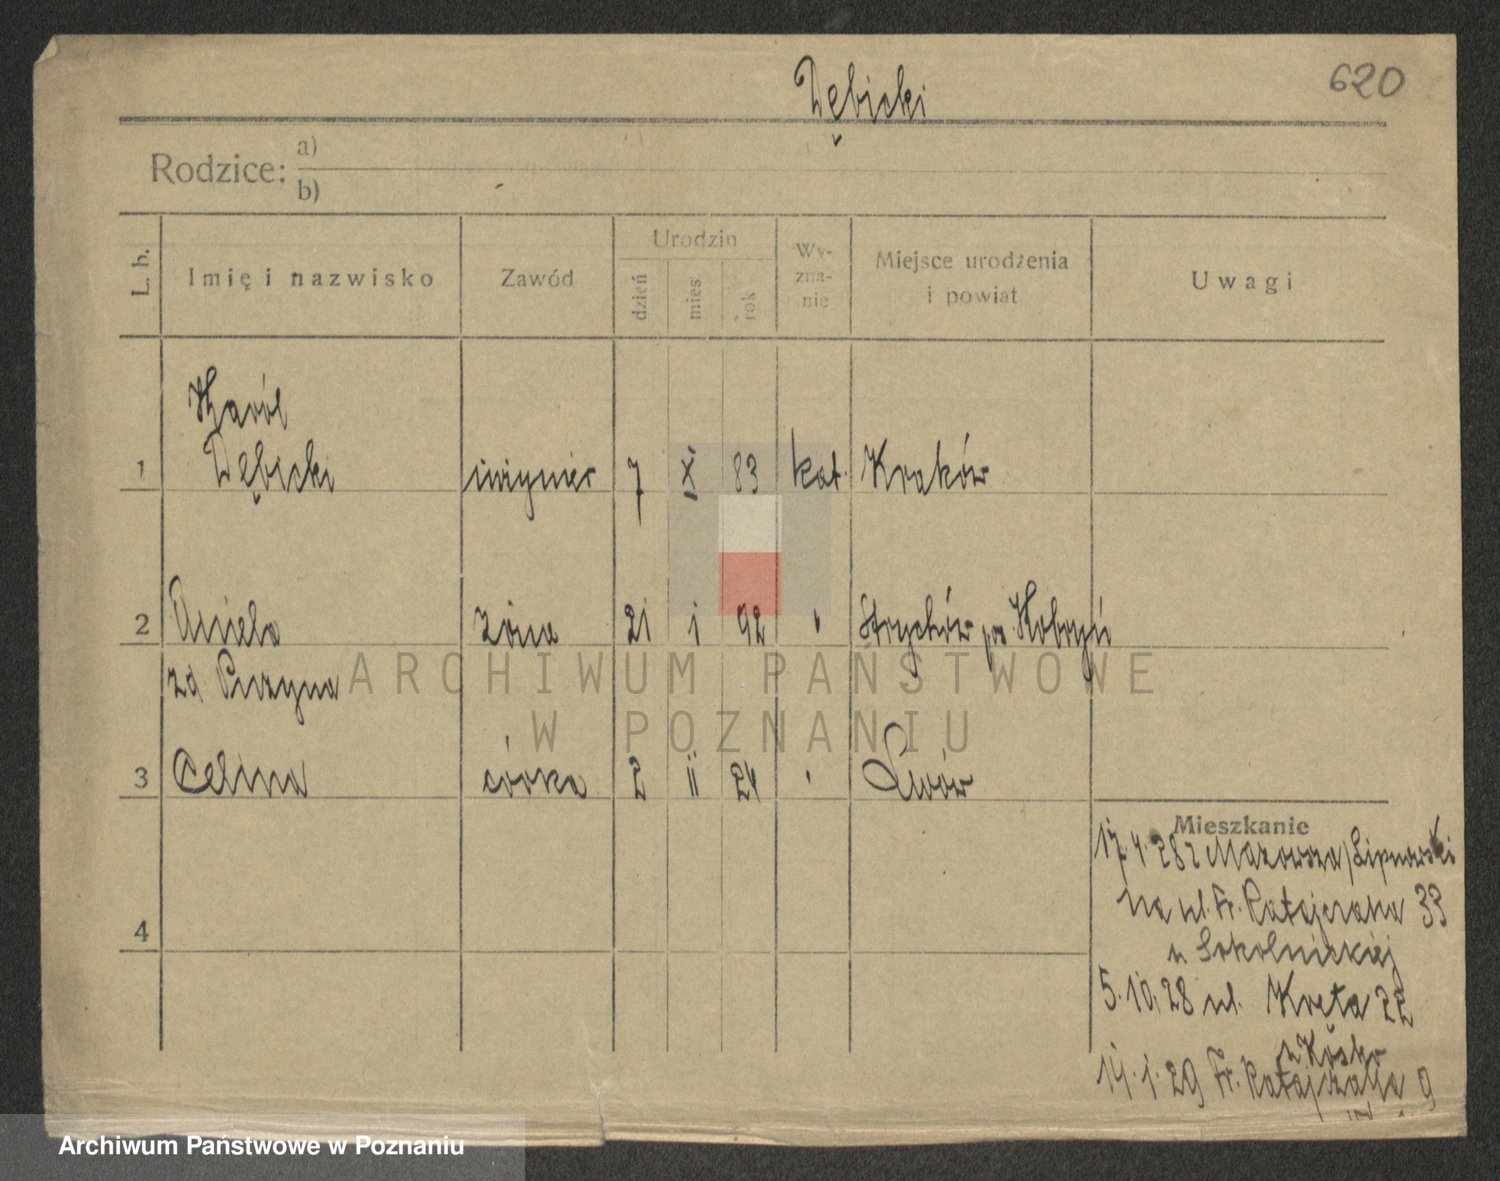 Dębicki
620
Rodzice: a)
b)
L. b.
Imię i nazwisko
Zawód
Urodzin
dzień
mies
rok
Wy-
zna-
nie
Miejsce urodzenia
i powiat
Uwagi
Karól
1 Dębicki inżynier 7 X 83 kat. Kraków
2 Aniela żona 21 i 92 " Strychów pow Kobryń
zd Puzyna
3 Celina córka 2 ii 24 " Lwów
4
Mieszkanie
17.4.28 z Mazowsza/Lipnowski
na ul. Fr. Ratajczaka 33
u Sokolnickiej
5.10.28 ul. Kreta 22
u Kosko
14.1.29 Fr. Ratajczaka 9
ARCHIWUM PAŃSTWOWE
W POZNANIU
Archiwum Państwowe w Poznaniu